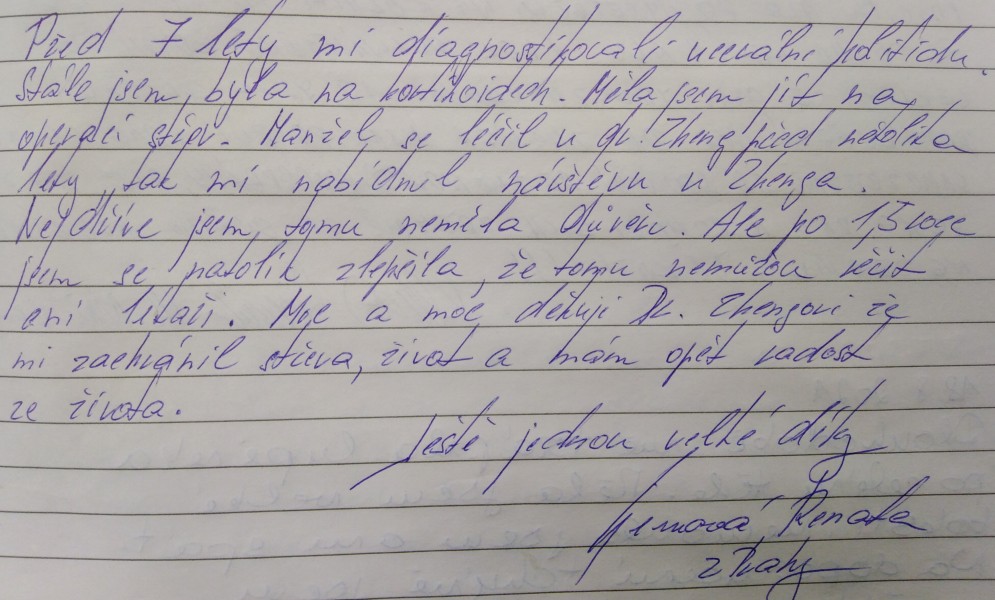 Před 7 lety mi diagnostikovali ucerální kolitidu.
Stále jsem byla na kortikoidech. Měla jsem jít na
operaci střev. Manžel se léčil u dr. Zheng před několika
lety, tak mi nabídnul návštěvu u Zhenga.
Nejdříve jsem tomu neměla důvěru. Ale po 1,5 roce
jsem se natolik zlepšila, že tomu nemůžou věřit
ani lékaři. Moc a moc děkuji Dr. Zhengovi že
mi zachránil střeva, život a mám opět radost
ze života.
Ještě jednou velké díky
Renata
z Prahy